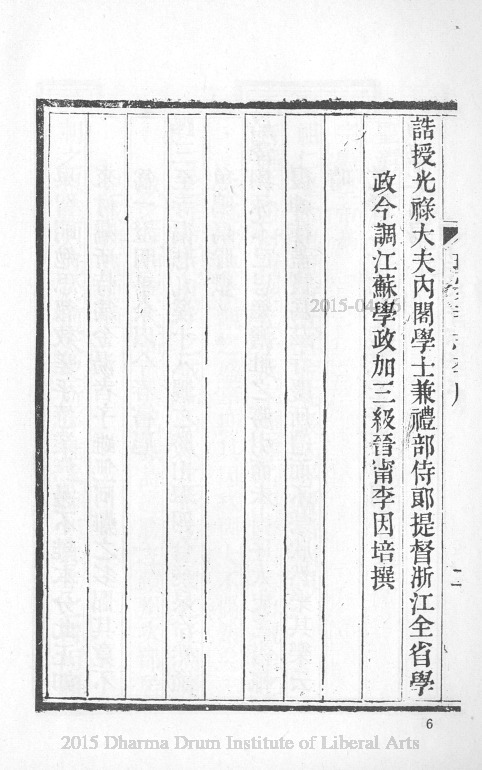 誥授光祿大夫內閣學士兼禮部侍郎提督浙江全省學
政今調江蘇學政加三級晉甯李因培撰
二
6
2015 Dharma Drum Institute of Liberal Arts